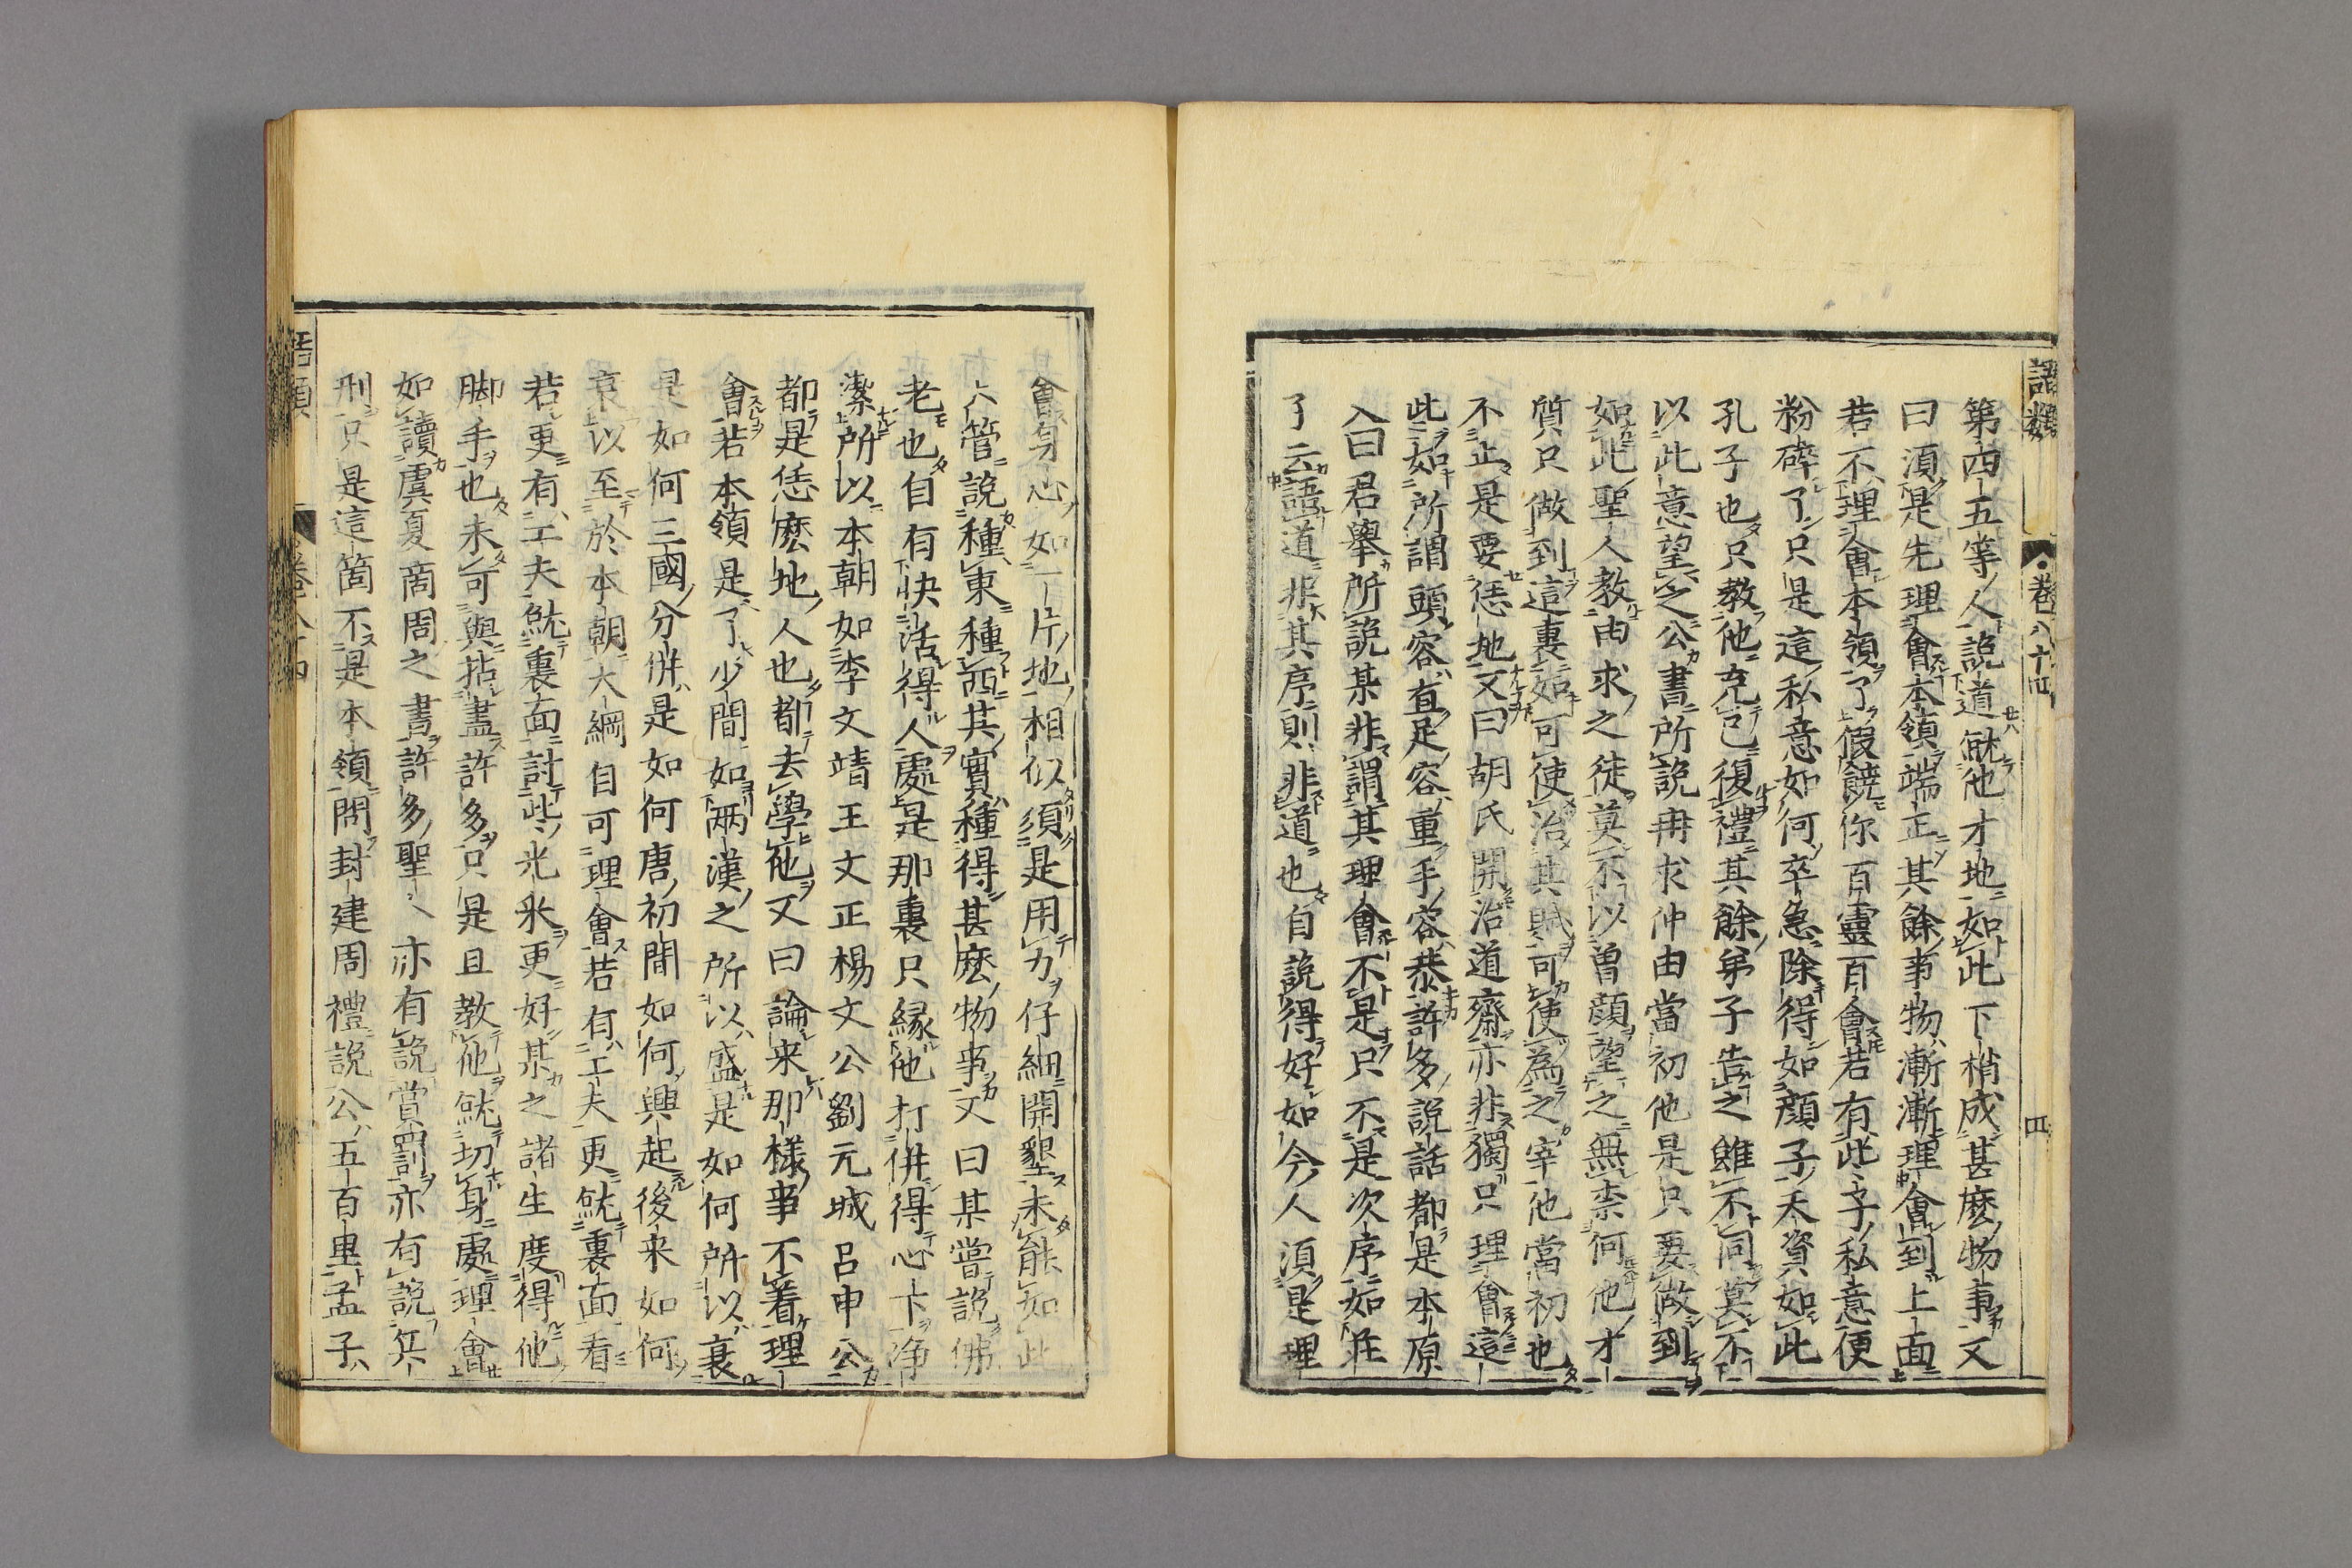 語類 卷八十四 四
第四五等人説道就他才地如此下梢成甚麽物事又
曰須是先理會本領端正其餘事物漸漸理會到上面
若不理會本領了假饒你百靈百會若有些子私意便
粉碎了只是這私意如何卒急除得如顔子天資如此
孔子也只教他克己復禮其餘弟子告之雖不同莫不
以此意望之公書所説冉求仲由當初他是只要做到
如此聖人教由求之徒莫不以曾顔望之無柰何他才
質只做到這裏如可使治其賦可使爲之宰他當初也
不止是要恁地又曰胡氏開治道齋亦非獨只理會這
此如所謂頭容直足容重手容恭許多説話都是本原
又曰君舉所説某非謂其理會不是只不是次序如莊
子云語道非其序則非道也自説得好如今人須是理
會身心如一片地相似須是用力仔細開墾未能如此
只管説種東種西其實種得甚麽物事又曰某嘗説佛
老也自有快活得人處是那裏只縁他打併得心下淨
潔所以本朝如李文靖王文正楊文公劉元城呂申公
都是恁麽地人也都去學他又曰論来那樣事不着理
會若本領是了少間如兩漢之所以盛是如何所以衰
是如何三國分併是如何唐初間如何興起後来如何
衰以至於本朝大綱自可理會若有工夫更就裏面看
若更有工夫就裏面討些光采更好某之諸生度得他
脚手也未可與拈盡許多只是且教他就切身處理會
如讀虞夏商周之書許多聖人亦有説賞罰亦有説兵
刑只是這箇不是本領問封建周禮説公五百里孟子
語類 卷八十四